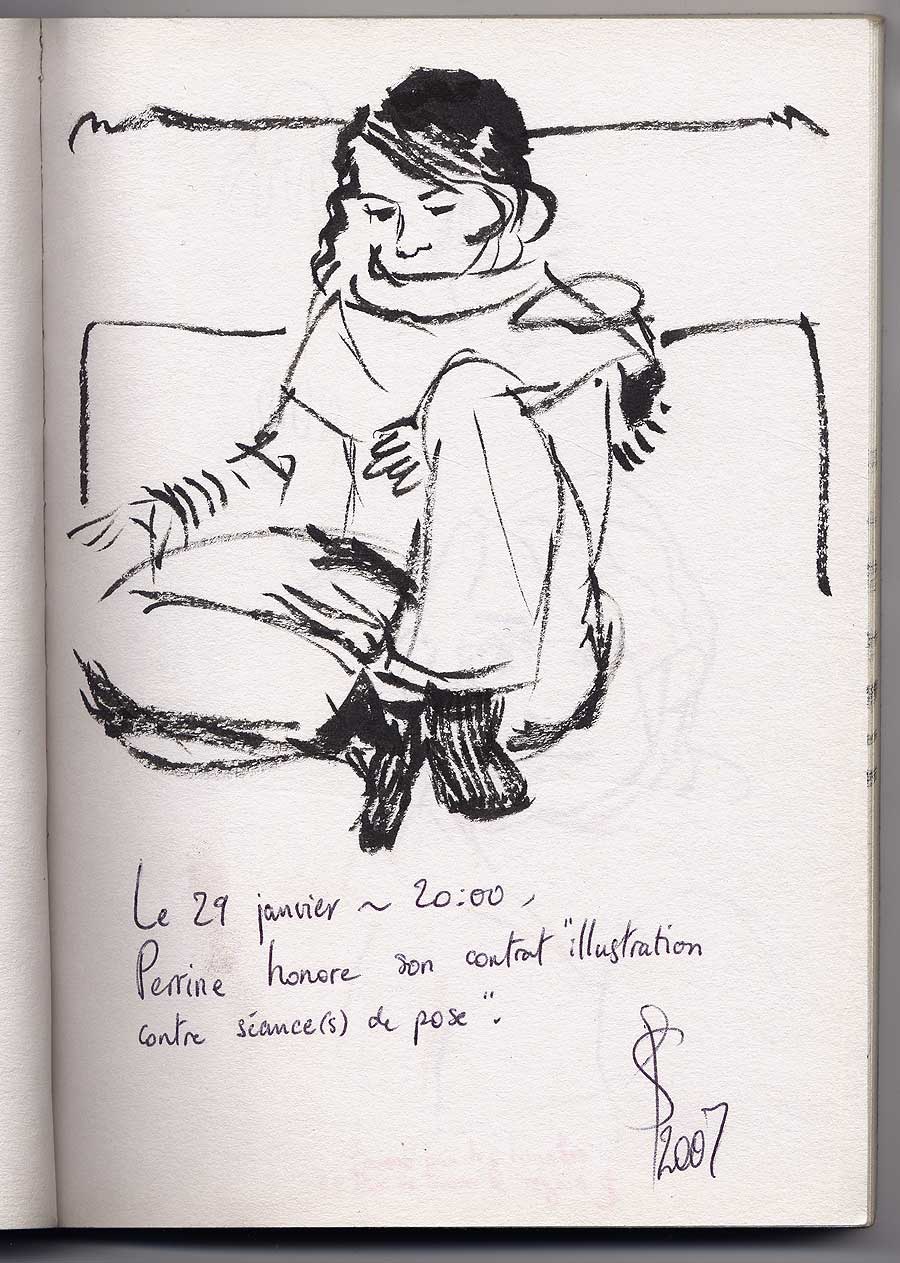 Le 29 janvier ~ 20:00,
Perrine honore son contrat "illustration
contre séance(s) de pose".
2007